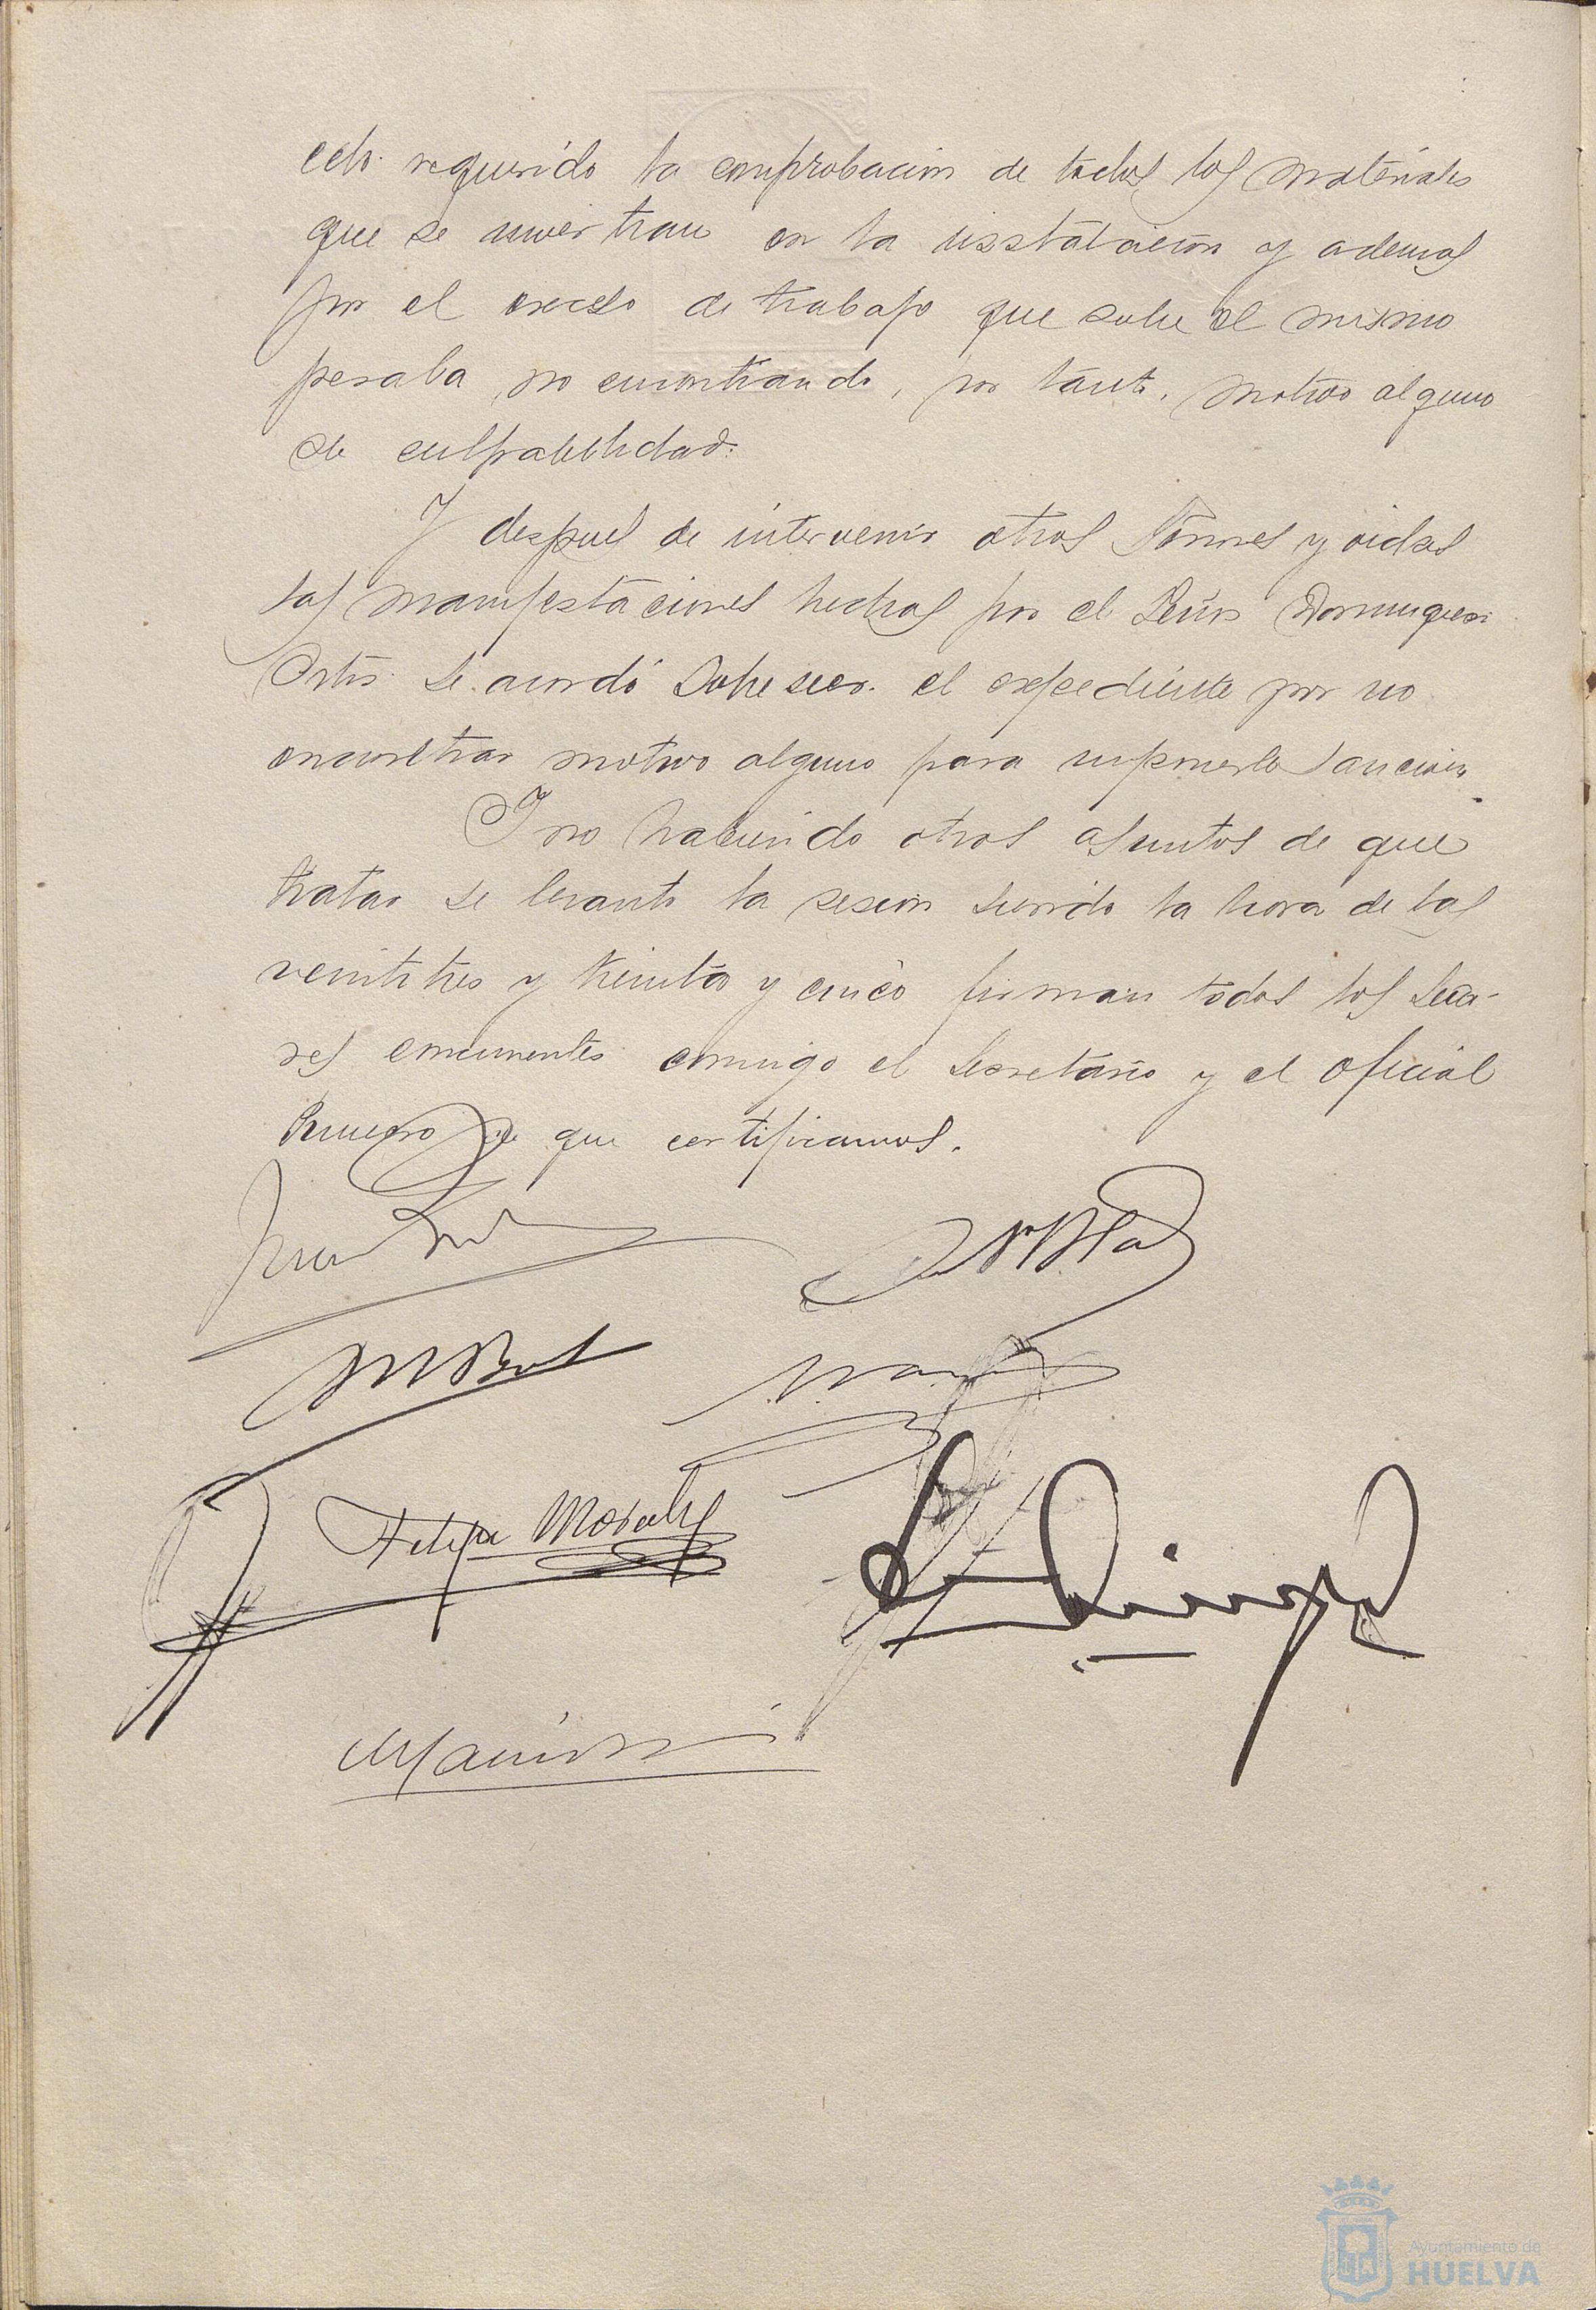 requerido la comprobacion de todos los materiales
que se inviertran en la instalacion y ademas
por el exceso de trabajo que sobre el mismo
pesaba no encontrando, por tanto, motivo alguno
de culpabilidad.
Y despues de intervenir otros Señores y oidas
las manifestaciones hechas por el Señor Dominguez
Ortiz se acordó sobreseer el expediente por no
encontrar motivo alguno para imponerle sancion
Y no habiendo otros asuntos de que
tratar se levantó la sesion siendo la hora de las
veintitres y treinta y cinco firman todos los Seño-
res concurrentes conmigo el Secretario y el oficial
Primero de que certificamos.
Felipe Morales
Ayuntamiento de
HUELVA